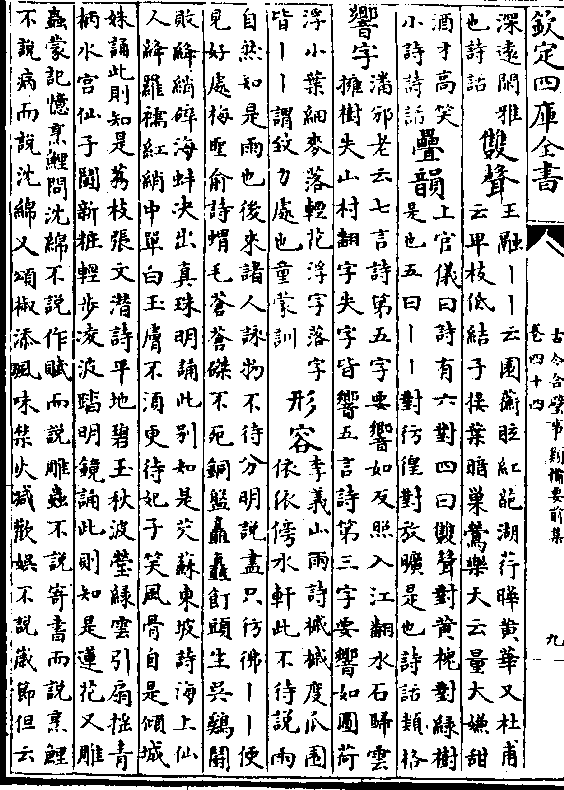 欽定四庫全書
古今合璧事類備要前集
卷四十四
九
深遠閒雅
也詩話
雙聲
王融丨丨云園蘅眩紅蘤湖荇曄黃華又杜甫
云卑枝低結子接葉暗巢鶯樂天云量大嫌甜
酒才高笑
小詩詩話
疊韻
上官儀曰詩有六對四曰雙聲對黃槐對綠樹
是也五曰丨丨對彷徨對放曠是也詩話類格
響字
潘邠老云七言詩第五字要響如反照入江翻水石歸雲
擁樹失山村翻字失字皆響五言詩第三字要響如圓荷
浮小葉細麥落輕花浮字落字
皆丨丨謂致力處也童蒙訓
形容
李義山雨詩摵摵度瓜園
依依傍水軒此不待說雨
自然知是雨也後來諸人詠物不待分明說盡只彷彿丨丨便
見好處梅聖俞詩蝟毛蒼蒼磔不死銅盤矗矗飣頭生吳鷄鬬
敗絳綃碎海蚌決出真珠明誦此別知是芡蘇東坡詩海上仙
人絳羅襦紅綃中單白玉膚不須更待妃子笑風骨自是傾城
姝誦此則知是荔枝張文潛詩平地碧玉秋波瑩綠雲引扇搖青
柄水宮仙子鬬新粧輕步凌波踏明鏡誦此則知是蓮花又雕
蟲蒙記憶烹鯉問沈綿不說作賦而說雕蟲不說寄書而說烹鯉
不說病而說沈綿又頌椒添諷味禁火減歡娛不說歲節但云